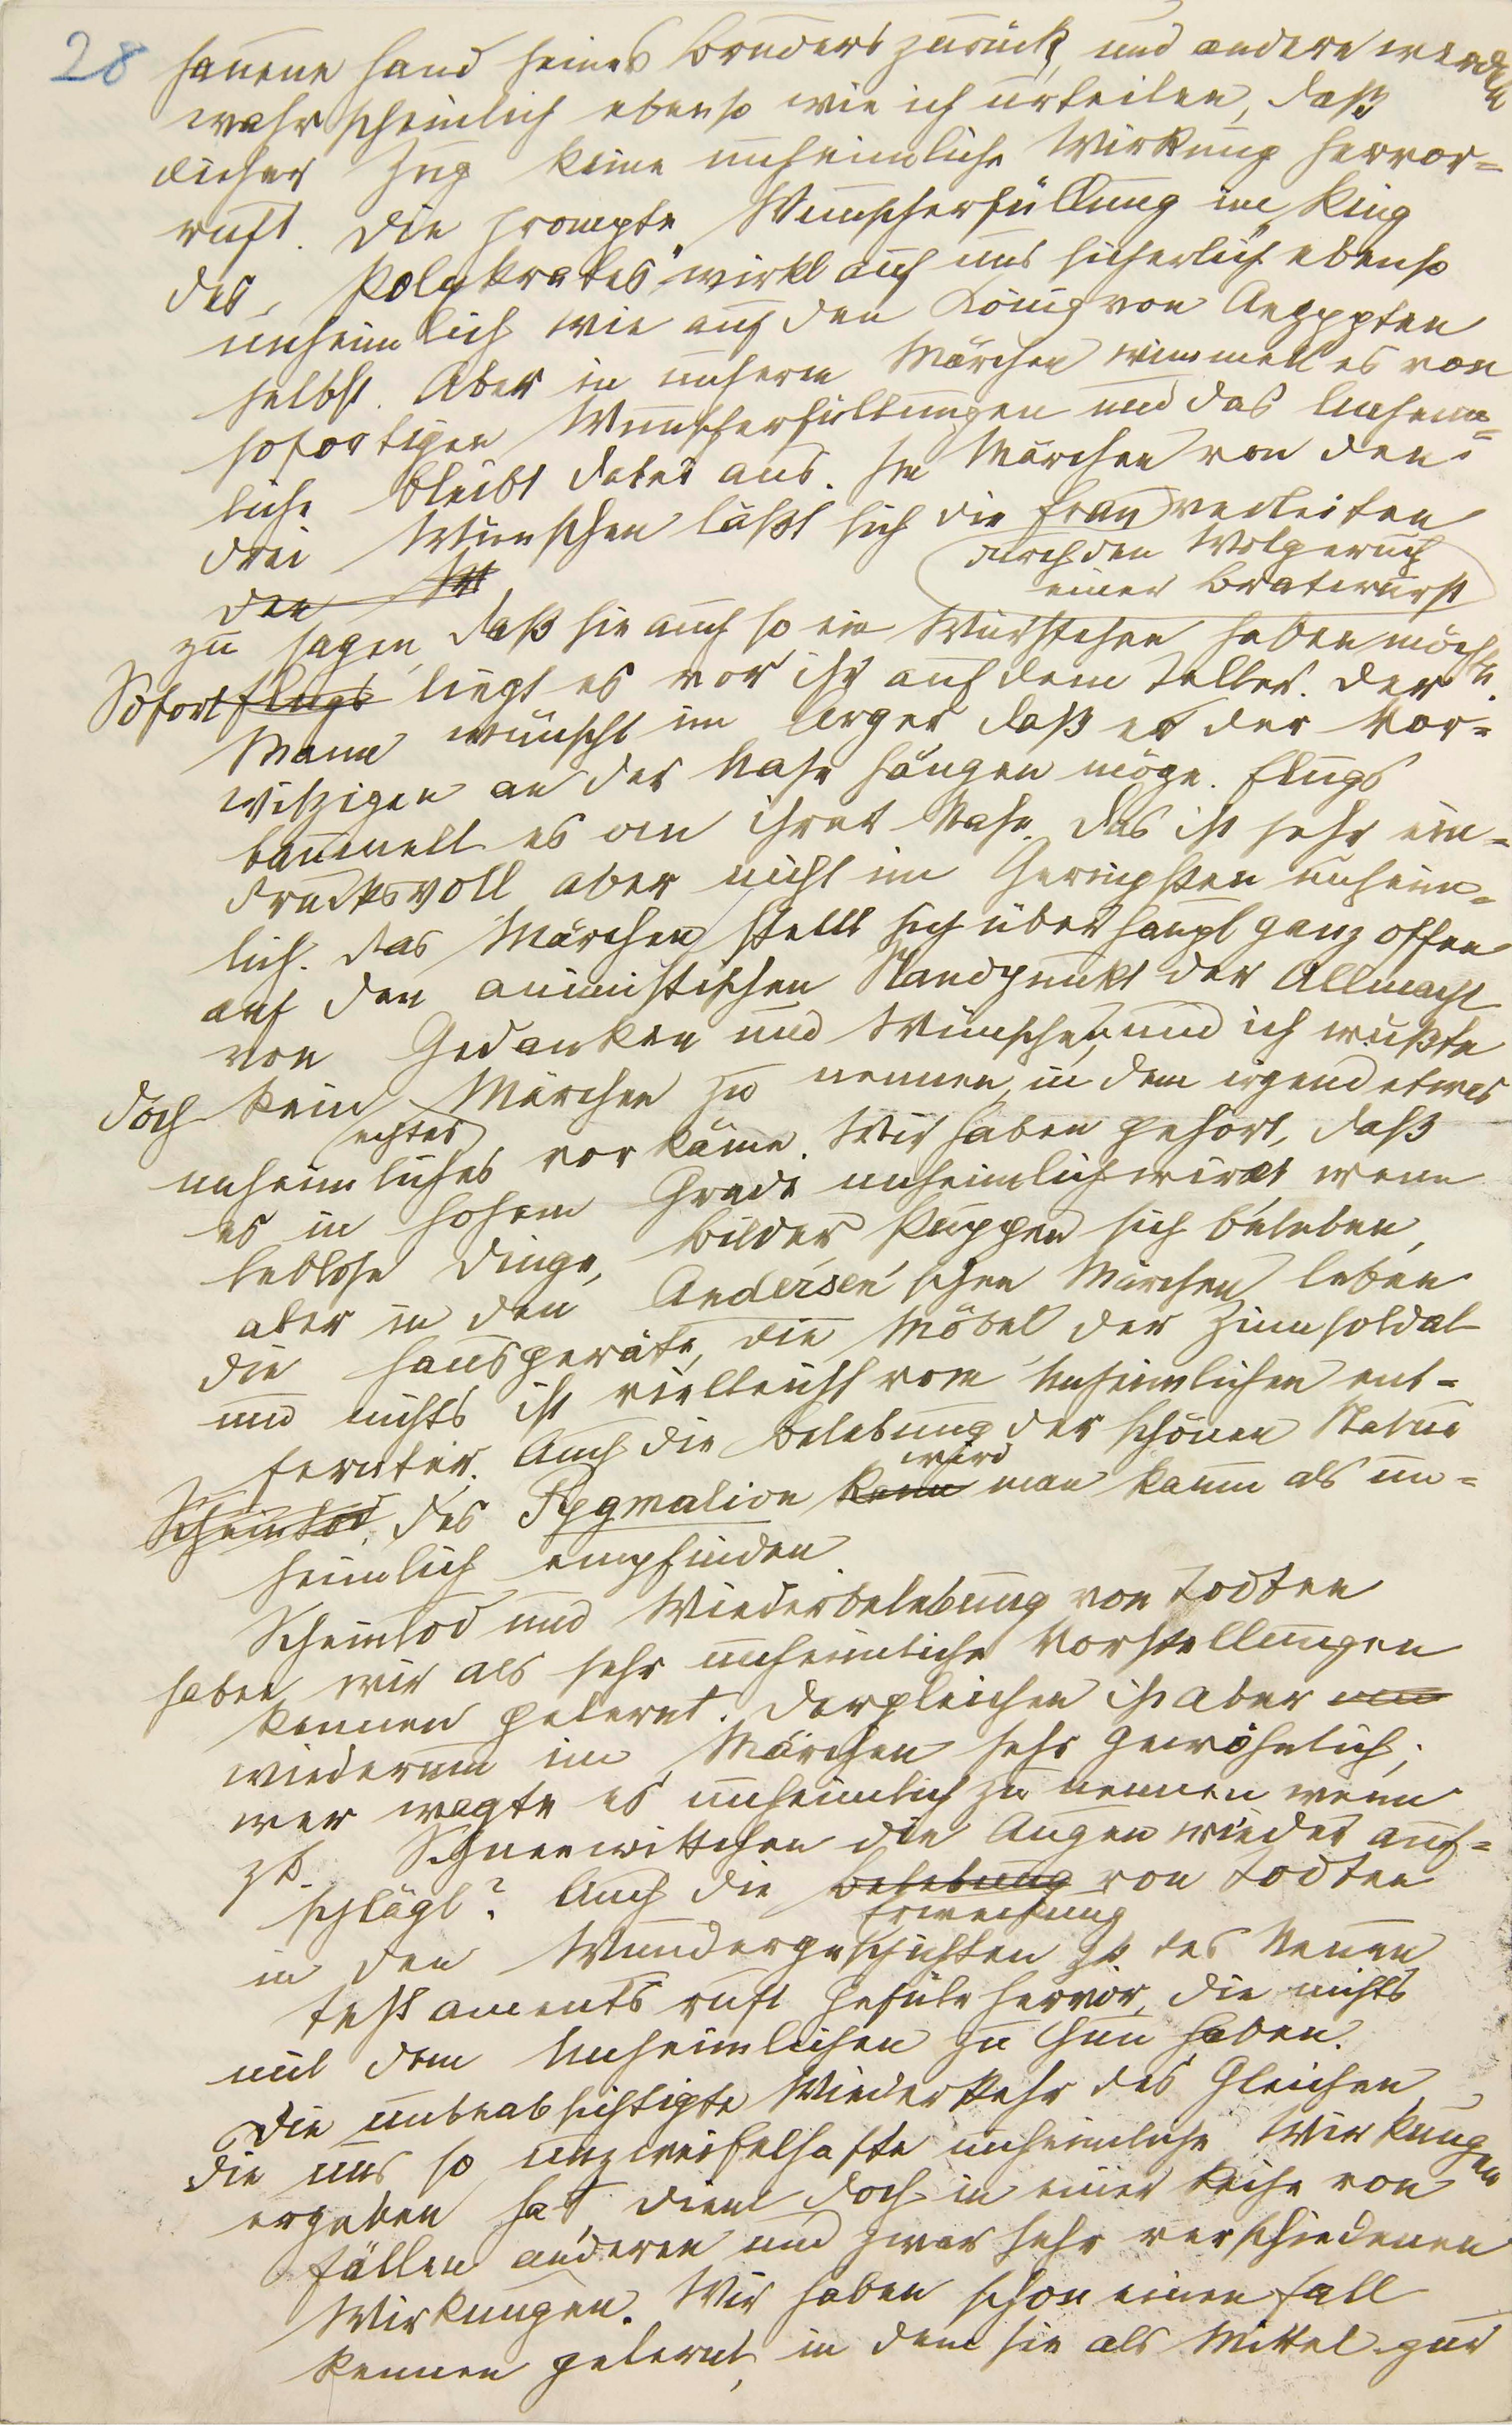 28 hauene Hand seines Bruders zurück, und andere werden
wahrscheinlich ebenso wie ich urteilen, daß
dieser Zug keine unheimliche Wirkung hervor=
ruft. Die prompte Wunscherfüllung im „Ring
des Polykrates" wirkt auf uns sicherlich ebenso
unheimlich wie auf den König von Aegypten
selbst. Aber in unserem Märchen wimmelt es von
sofortigen Wunscherfüllungen und das Unheim=
liche bleibt dabei aus. Im Märchen von den
drei Wünschen läßt sich die Frau verleiten
durch den Wolgeruch
den einer Bratwurst
zu sagen, daß sie auch so ein Würstchen haben möchte.
Sofort flugs liegt es vor ihr auf dem Teller. Der
Mann wünscht im Ärger daß es der Vor=
witzigen an der Nase hängen möge. Flugs
baumelt es an ihrer Nase. Das ist sehr ein=
drucksvoll aber nicht im Geringsten unheim=
lich. Das Märchen stellt sich überhaupt ganz offen
auf den animistischen Standpunkt der Allmacht
von Gedanken und Wünschen, und ich wüßte
doch kein Märchen zu nennen, in dem irgend etwas
echtes
unheimliches vorkäme. Wir haben gehört, daß
es in hohem Grade unheimlich wirkt wenn
leblose Dinge, Bilder, Puppen sich beleben,
aber in den Andersen'schen Märchen leben
die Hausgeräte, die Möbel der Zinnsoldat
und nichts ist vielleicht vom Unheimlichen ent=
fernter. Auch die Belebung der schönen Statue
wird
Scheintod des Pygmalion kann man kaum als un=
heimlich empfinden.
Scheintod und Wiederbelebung von Todten
haben wir als sehr unheimliche Vorstellungen
kennen gelernt. Dergleichen ist aber
wiederum im Märchen sehr gewöhnlich;
wer wagte es unheimlich zu nennen wenn
zB. Schneewittchen die Augen wieder auf=
schlägt? Auch die Belebung von Todten
Erweckung
in den Wundergeschichten zB des Neuen
Testaments ruft Gefühle hervor, die nichts
mit dem Unheimlichen zu thun haben.
Die unbeabsichtigte Wiederkehr des Gleichen,
die uns so unzweifelhafte unheimliche Wirkungen
ergeben hat, dient doch in einer Reihe von
Fällen anderen und zwar sehr verschiedenen
Wirkungen. Wir haben schon einen Fall
kennen gelernt, in dem sie als Mittel zur